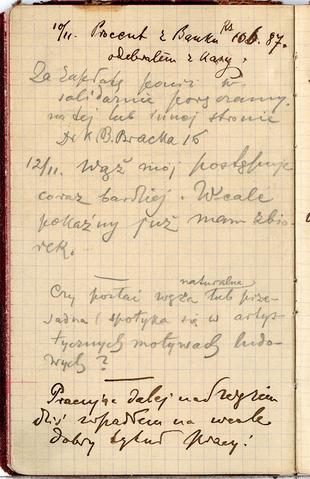 10/11. Procent z Banku Ks 106.87.
odebrałem z Kasy.
Za zapłatę
solidarnie
na tej lub innej stronie
Dr K. B. Bracka 16
12/11. Wąż mój postępuje
coraz bardziej. Wcale
pokaźny już mam zbio-
rek.
Czy postać węża naturalna lub prze-
sadna spotyka się w artys-
tycznych motywach ludo-
wych?
Pracując dalej nad wężem
dziś wpadłem na wcale
dobry tytuł pracy!